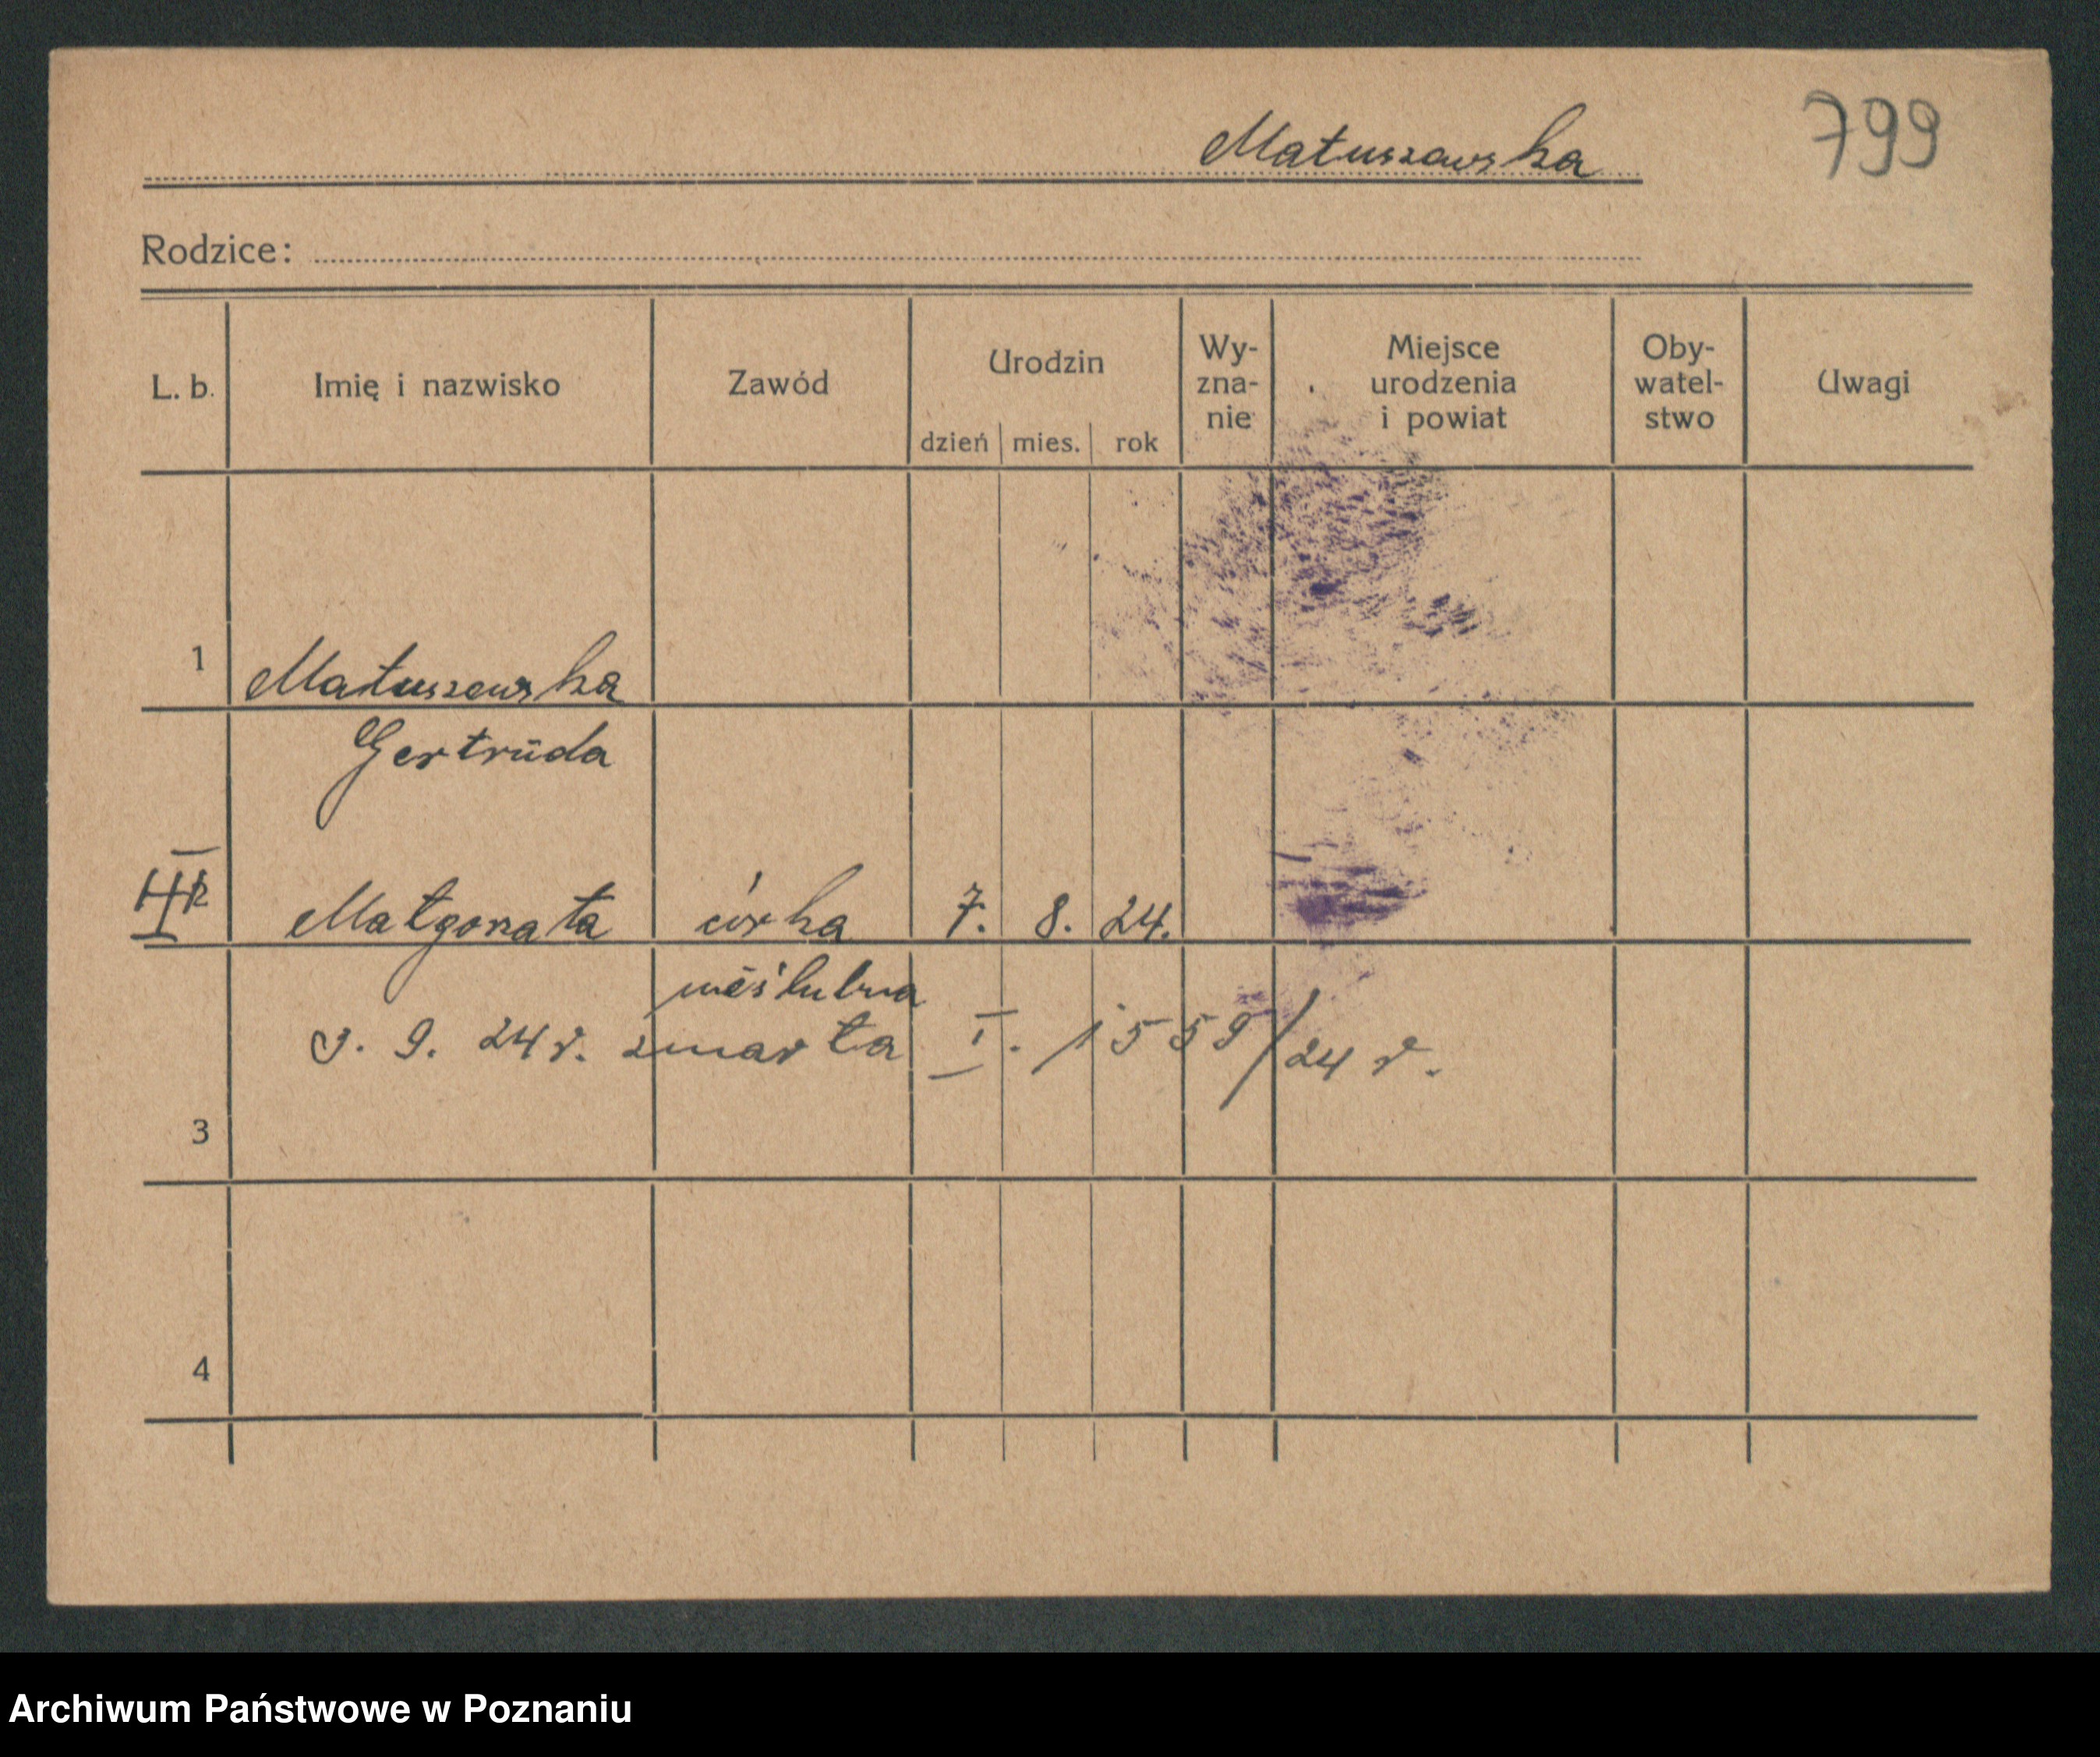 Matuszewska
799
Rodzice:
L. b. Imię i nazwisko Zawód Urodzin dzień mies. rok Wy-zna-nie Miejsce urodzenia i powiat Oby-watel-stwo Uwagi
1 Matuszewska
Gertrüda
2 Małgorzata córka 7. 8. 24.
nieślubna
9. 9. 24 r. zmarta I. 1559/24 r.
3
4
Archiwum Państwowe w Poznaniu